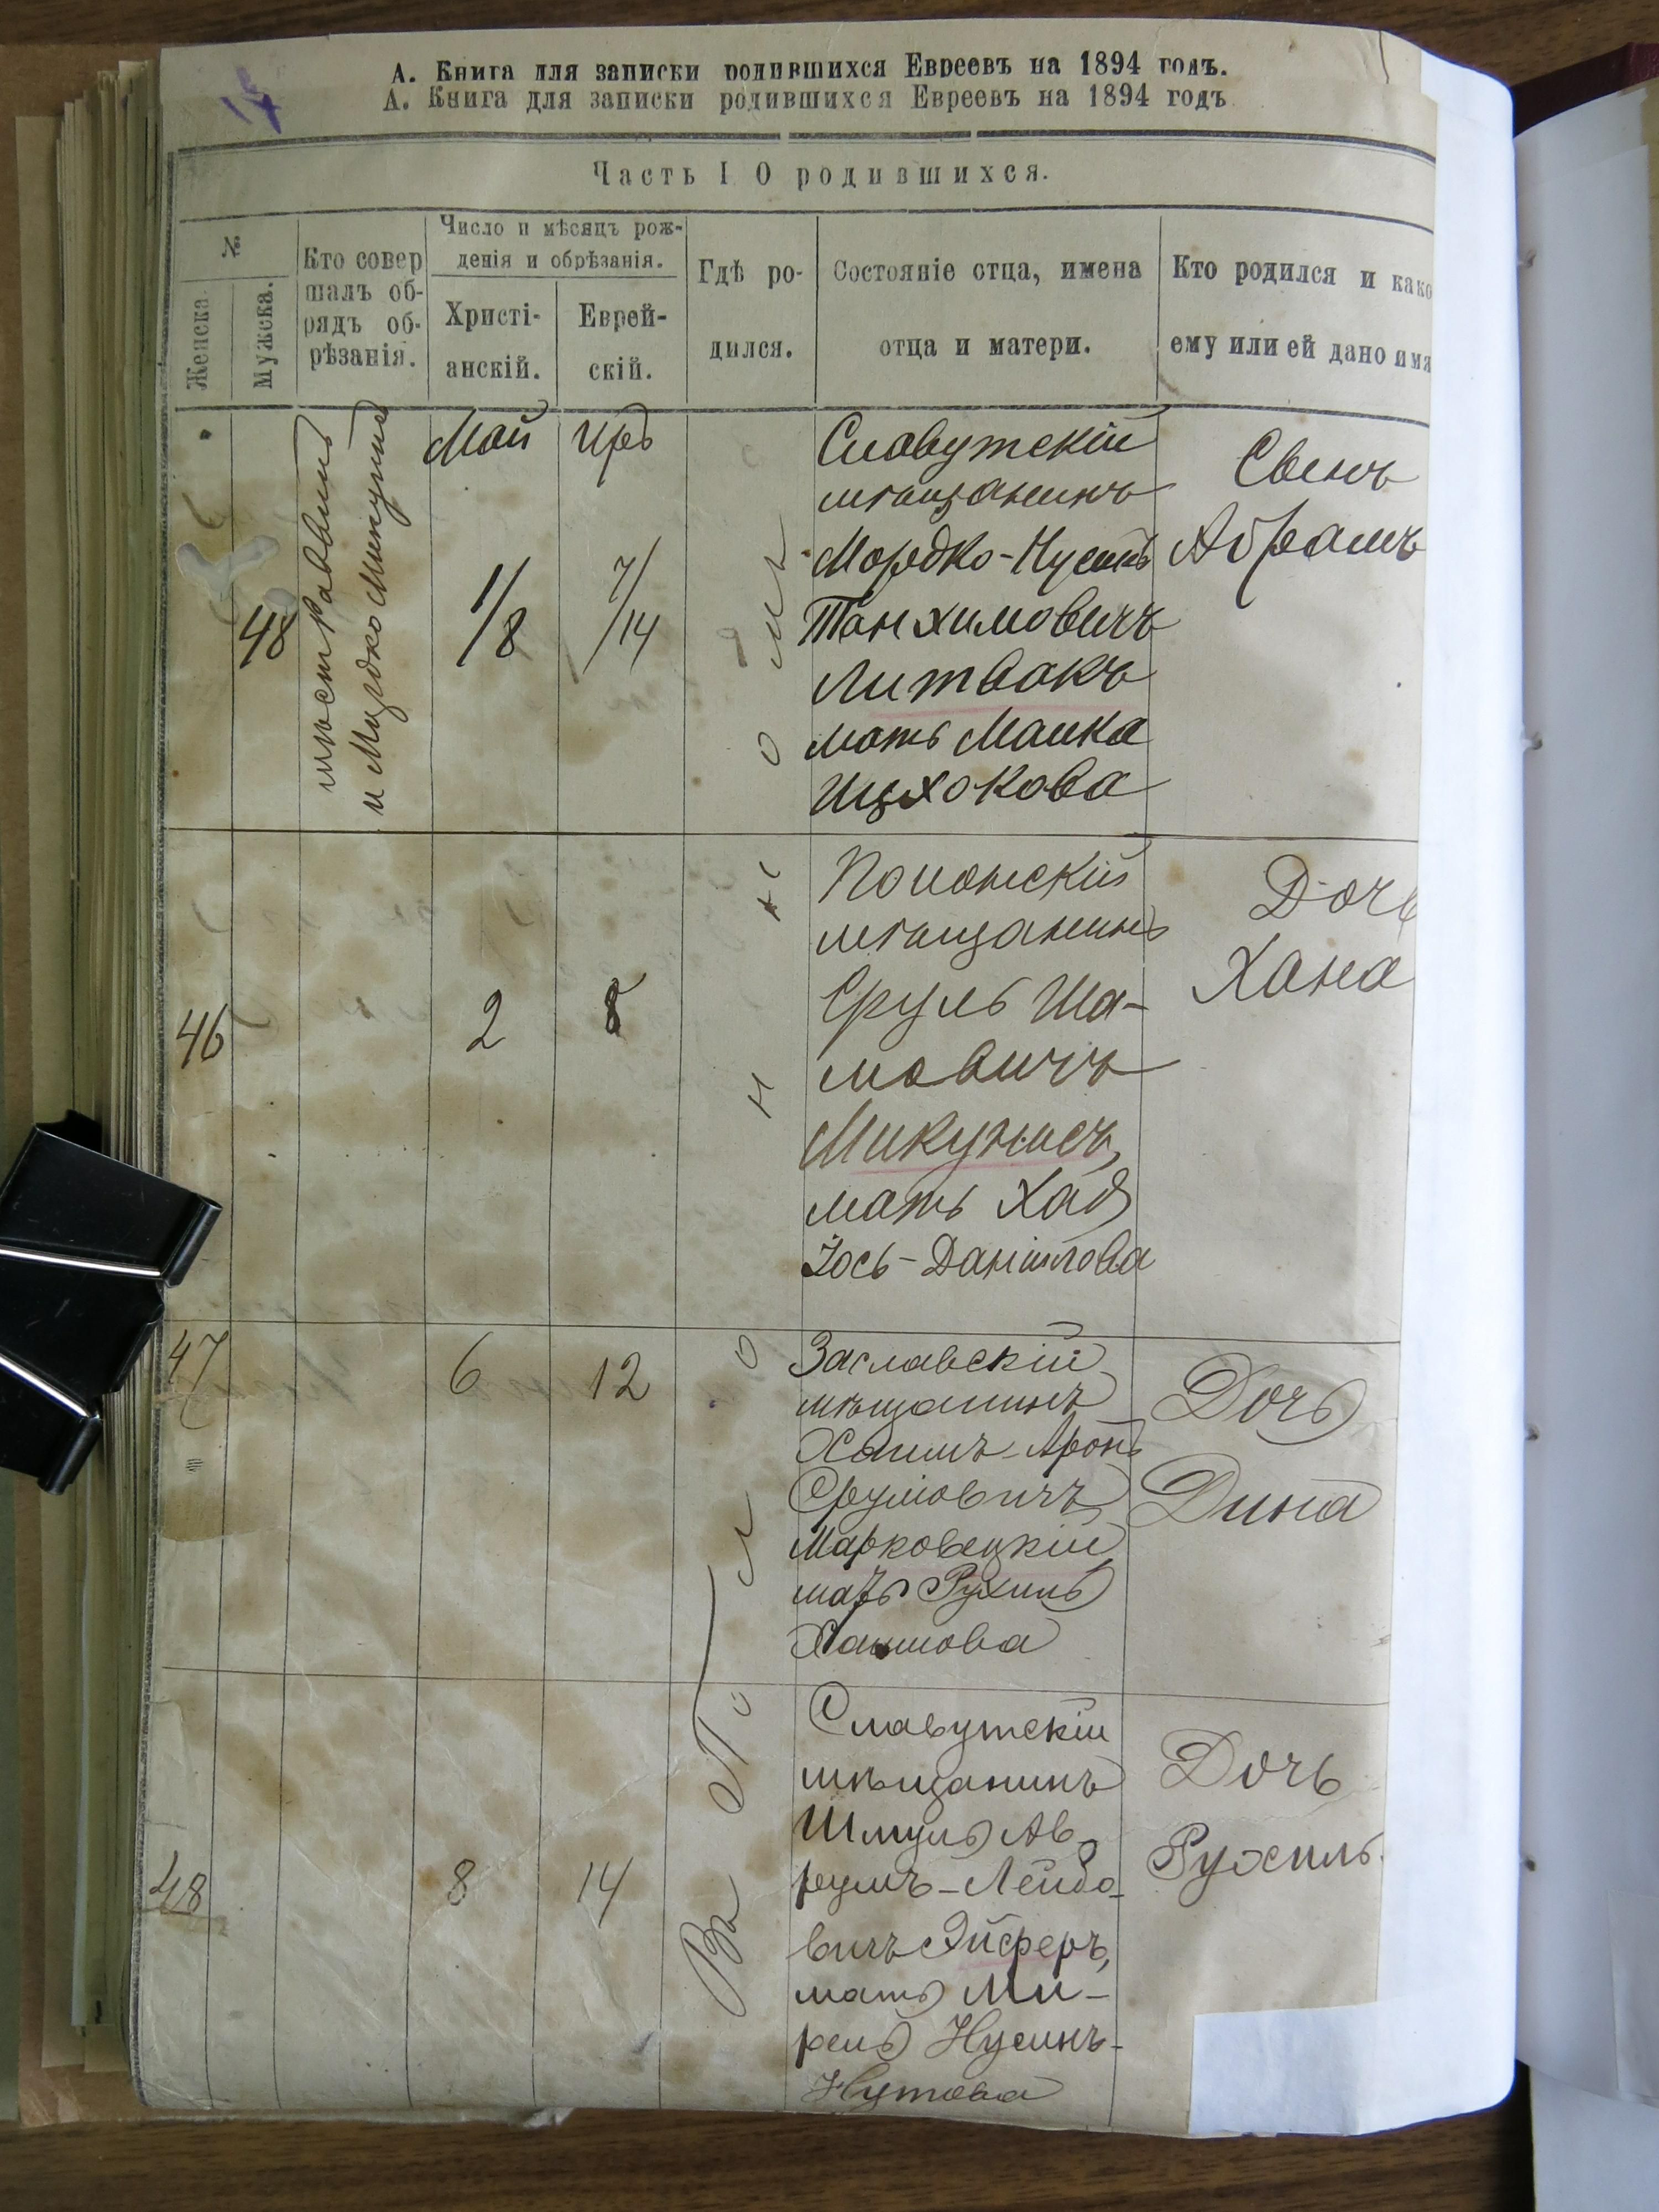 А. Книга для записки родившихся Евреевъ на 1894 годъ.
А. Книга для записки родившихся Евреевъ на 1894 годъ
Часть I О родившихся.
№
Женска.
Мужска.
Кто совер
шалъ об-
рядъ об-
рѣзанія.
Число и мѣсяцъ рож-
денія и обрѣзанія.
Христі-
анскій.
Еврей-
скій.
Гдѣ ро-
дился.
Состояніе отца, имена
отца и матери.
Кто родился и како
ему или ей дано имя
48
и Мордко Микунис
Май
1/8
Иръ
7/14
Славутскій
мѣщанинъ
Мордко-Нусинъ
Танхимовичъ
Литвакъ
мать Малка
Ицхокова
Сынъ
Абрамъ
46
2
8
Полонскій
мѣщанинъ
Сруль Ша-
мовичъ
Микунисъ,
мать Хая
Іось-Даніилова
Дочь
Хана
47
6
12
Заславскій
мѣщанинъ
Хаимъ-Аронъ
Срулювичъ
Марковецкій
мать Рухиль
Хаимова
Дочь
Дина
48
8
14
Въ По
Славутскій
мѣщанинъ
Шмуль Ав
румъ-Лейбо-
вичъ Эйсферъ,
мать Ми-
рель Нусинъ-
Нутова
Дочь
Рухиль.